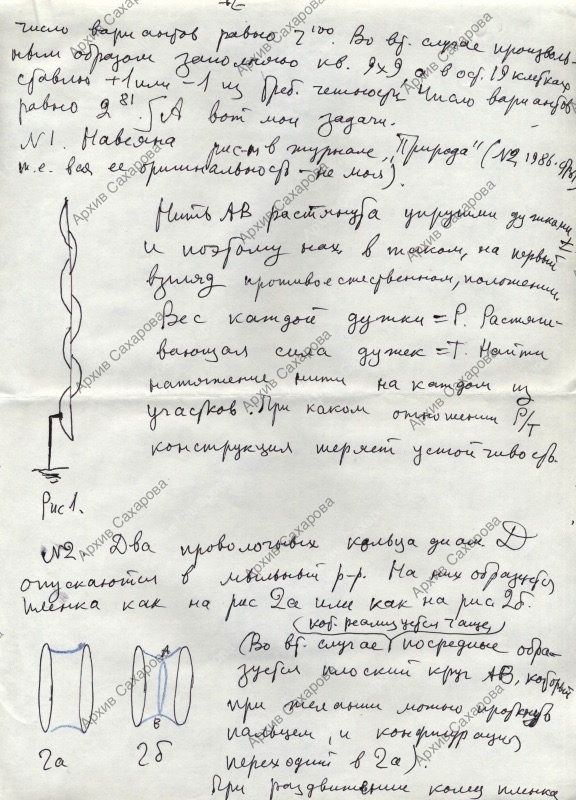 число вариантов равно 2¹⁰⁰. Во вт. случае произволь-
ным образом заполняю кв. 9х9, а в ост. 19 клетках
ставлю +1 или -1 из треб. четности. Число вариантов
равно 2⁸¹. А вот мои задачи.
N1. Навеяна рис-м в журнале "Природа" (N2, 1986.
т.е. вся ее оригинальность - не моя).
Нить АВ растянута упругими дужками
и поэтому нах. в таком, на первый
взгляд противоестественном, положении.
Вес каждой дужки = P. Растяги-
вающая сила дужек = T. Найти
натяжение нити на каждом из
участков. При каком отношении P/T
конструкция теряет устойчивость.
Рис 1.
N2 Два проволочных кольца диам. D
опускаются в мыльный р-р. На них образуется
пленка как на рис 2а или как на рис 2б.
(кот. реализуется чаще)
(Во вт. случае посредине обра-
зуется плоский круг АВ, который
при желании можно проткнуть
пальцем, и конфигурация
переходит в 2а).
При раздвижение колец пленка
A
B
2а
2б
Архив Сахарова